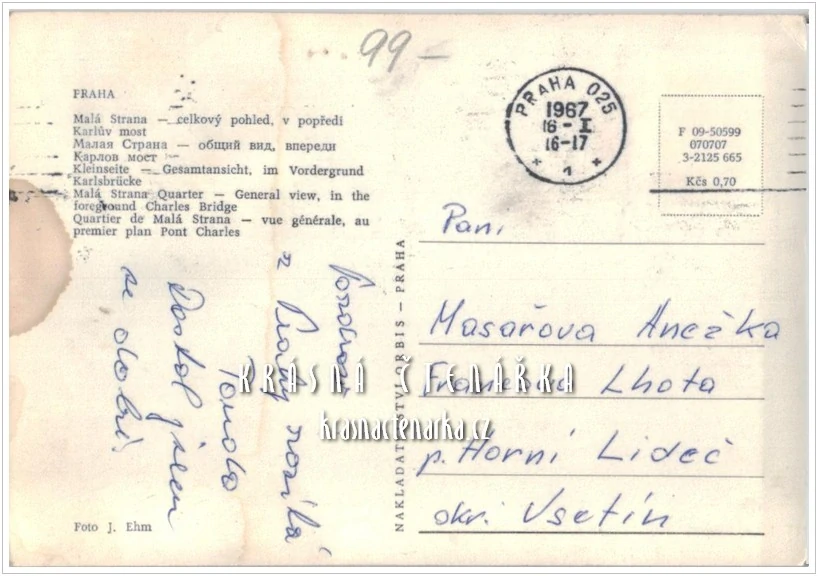 99-
PRAHA
Malá Strana — celkový pohled, v popředí
Karlův most
Малая Страна — общий вид, впереди
Карлов мост
Kleinseite — Gesamtansicht, im Vordergrund
Karlsbrücke
Malá Strana Quarter — General view, in the
foreground Charles Bridge
Quartier de Malá Strana — vue générale, au
premier plan Pont Charles
PRAHA 025
1967
16 - I
16-17
1
F 09-50599
070707
3-2125 665
Kčs 0,70
Pozdrav
z Prahy posílá
Tonda
Dostal jsem
se dobře.
NAKLADATELSTVÍ ORBIS — PRAHA
Paní
Masařova Anežka
Lhota
p. Horní Lideč
okr. Vsetín
KRÁSNÁ ČTENÁŘKA
krasnactenarka.cz
Foto J. Ehm